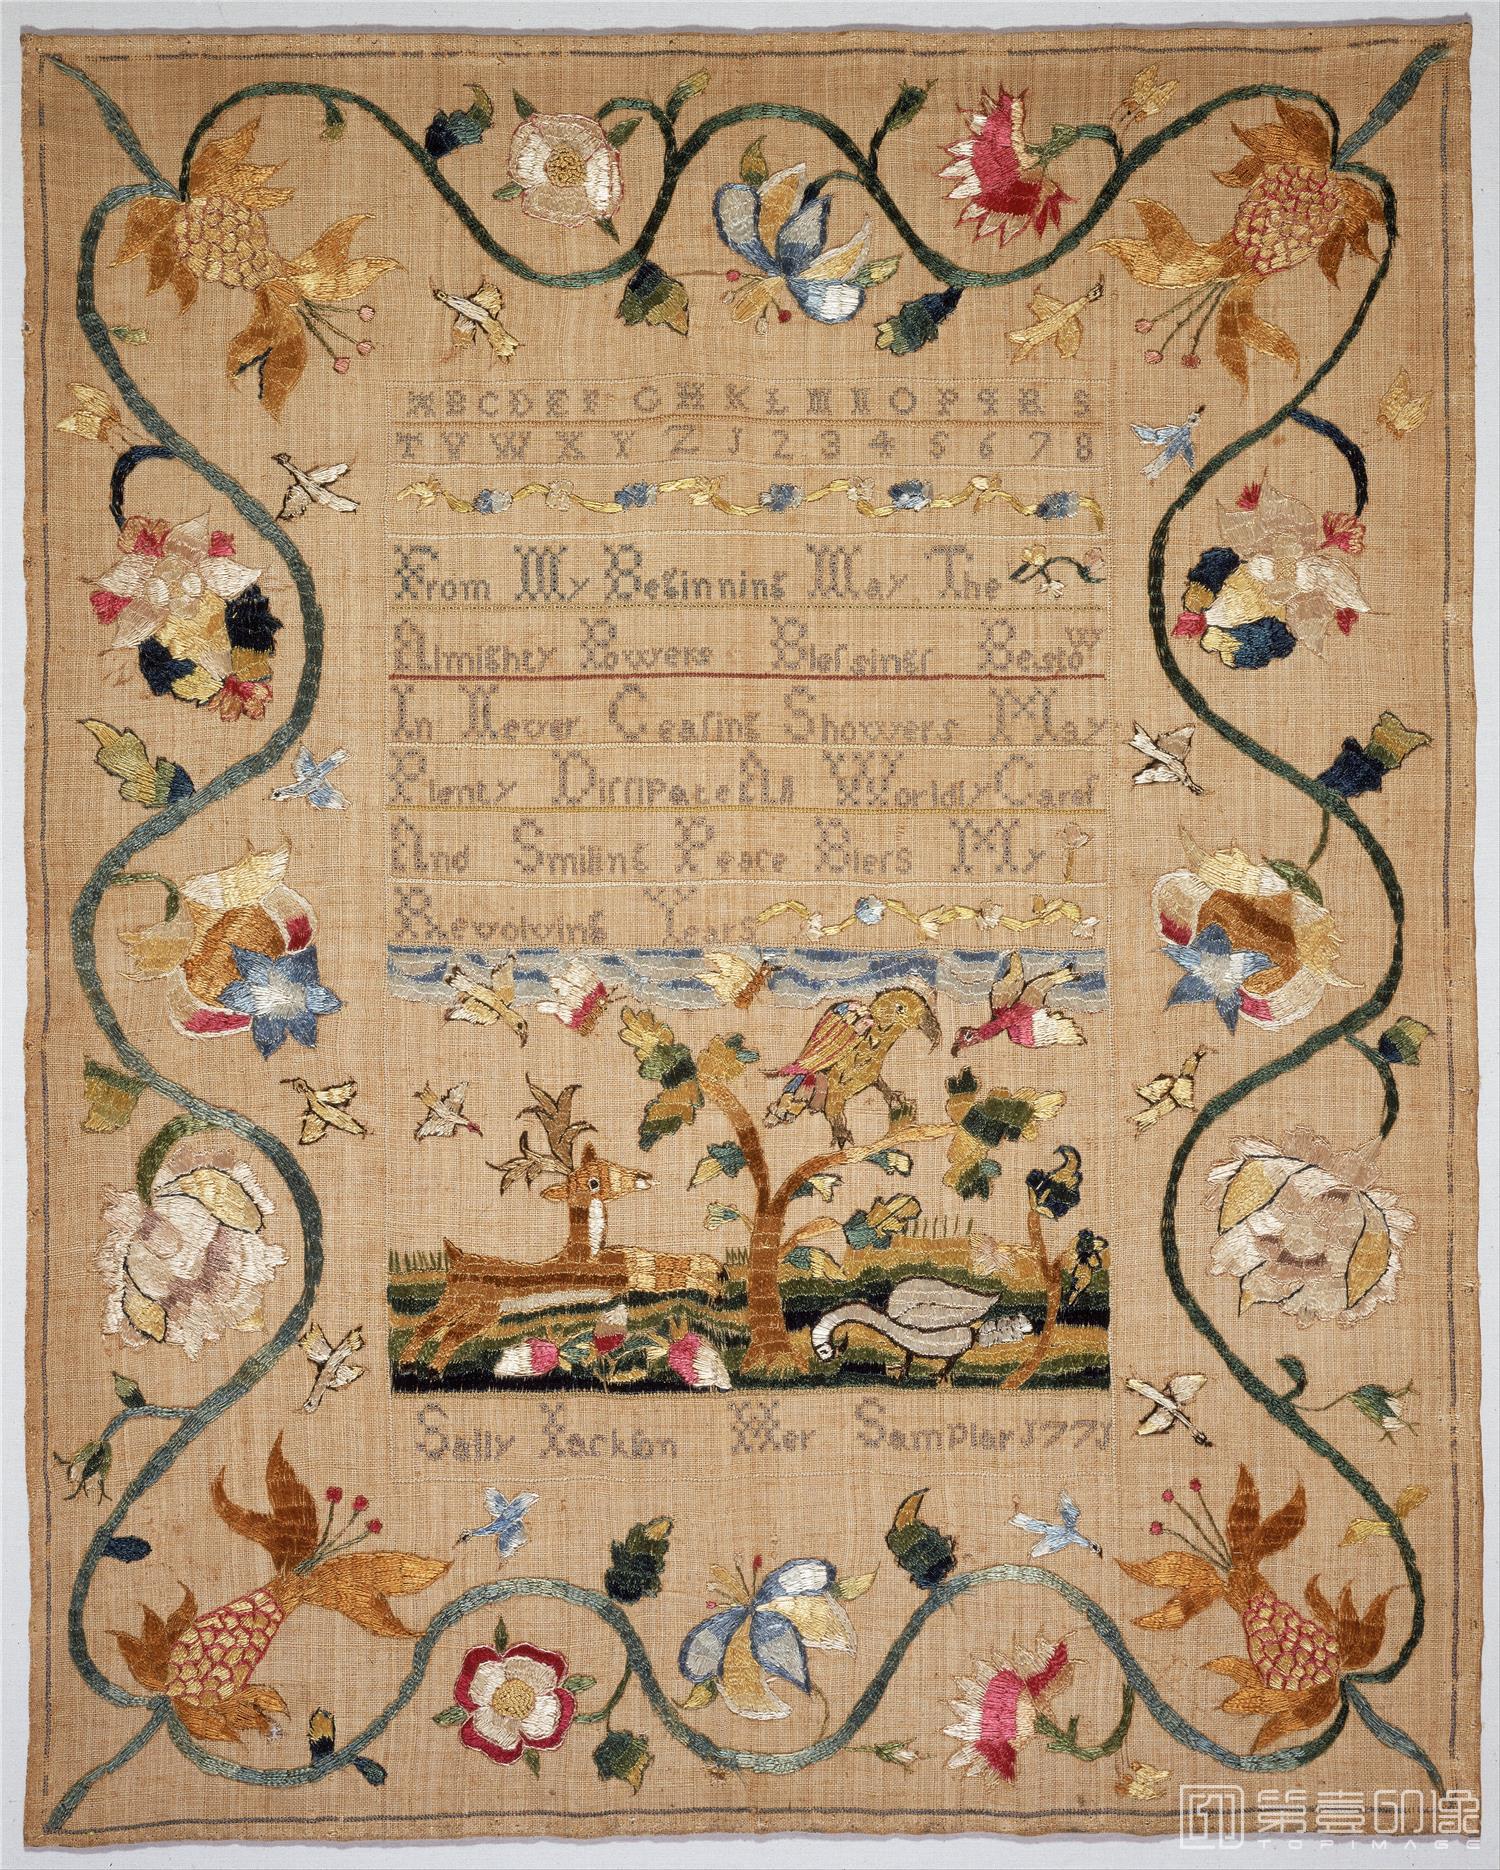 A B C D E F G H K L M N O P q R S
T V W X Y Z J 2 3 4 5 6 7 8
From My Beginning May The
Almighty Powers Bleſsings Bestow
In Never Ceaſing Showers May
Plenty Diſſipate All Worldly Careſ
And Smiling Peace Bleſs My
Revolving Years
Sally Jackſon Her Sampler 1771
第壹印像
TOPIMAGE